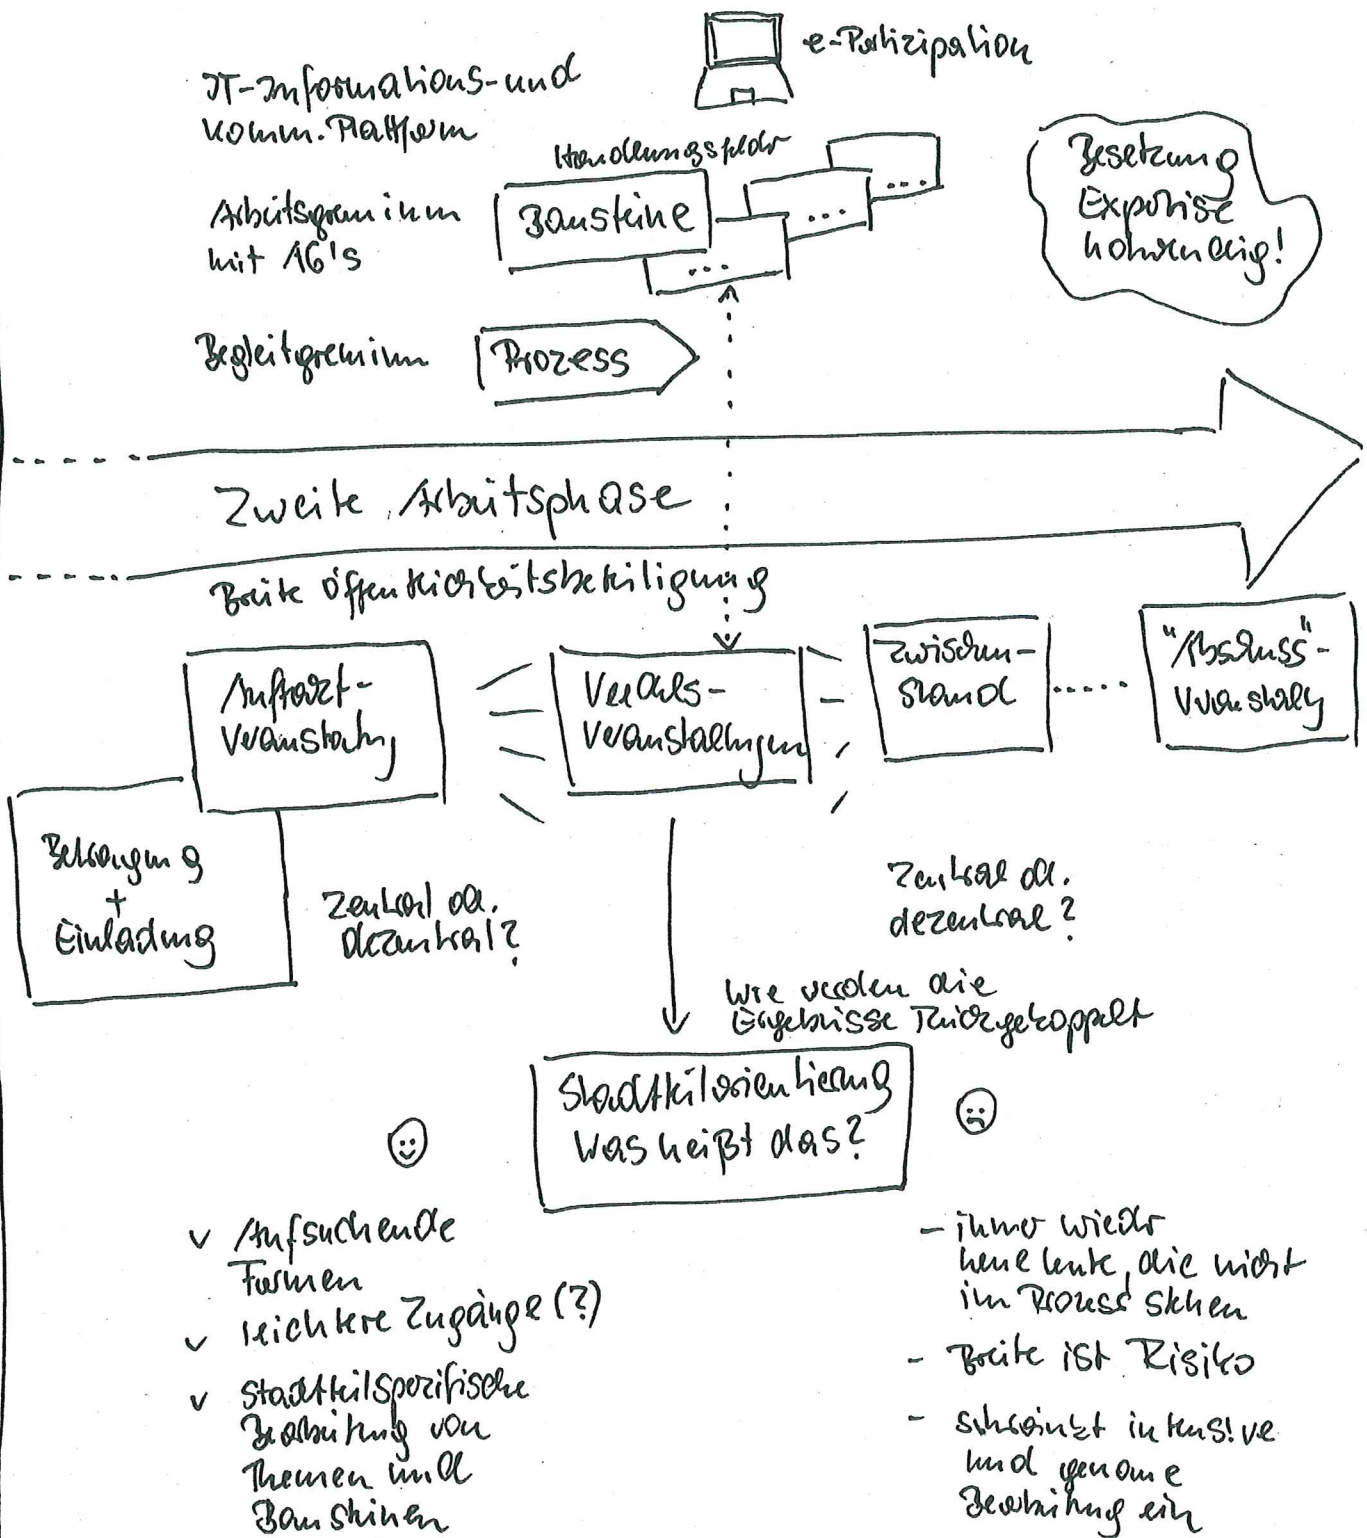 e-Partizipation
IT-Informations- und
Komm. Plattform
Handlungsfelder
Arbeitsgremium
mit AG's
Bausteine
...
...
...
Besetzung
Expertise
notwendig!
Begleitgremium
Prozess
Zweite Arbeitsphase
Breite Öffentlichkeitsbeteiligung
Auftakt-
veranstaltung
Verlaufs-
veranstaltungen
Zwischen-
stand
"Abschluss"-
Veranstaltg
+
Einladung
Zentral od.
dezentral?
Zentral od.
dezentral?
Wie werden die
Ergebnisse Rückgekoppelt
Stadtteilorientierung
Was heißt das?
v Aufsuchende
Formen
v leichtere Zugänge (?)
v Stadtteilspezifische
Bearbeitung von
Themen und
Bausteinen
- immer wieder
neue Leute, die nicht
im Prozess stehen
- Breite ist Risiko
- schränkt intensive
und genaue
Bearbeitung ein